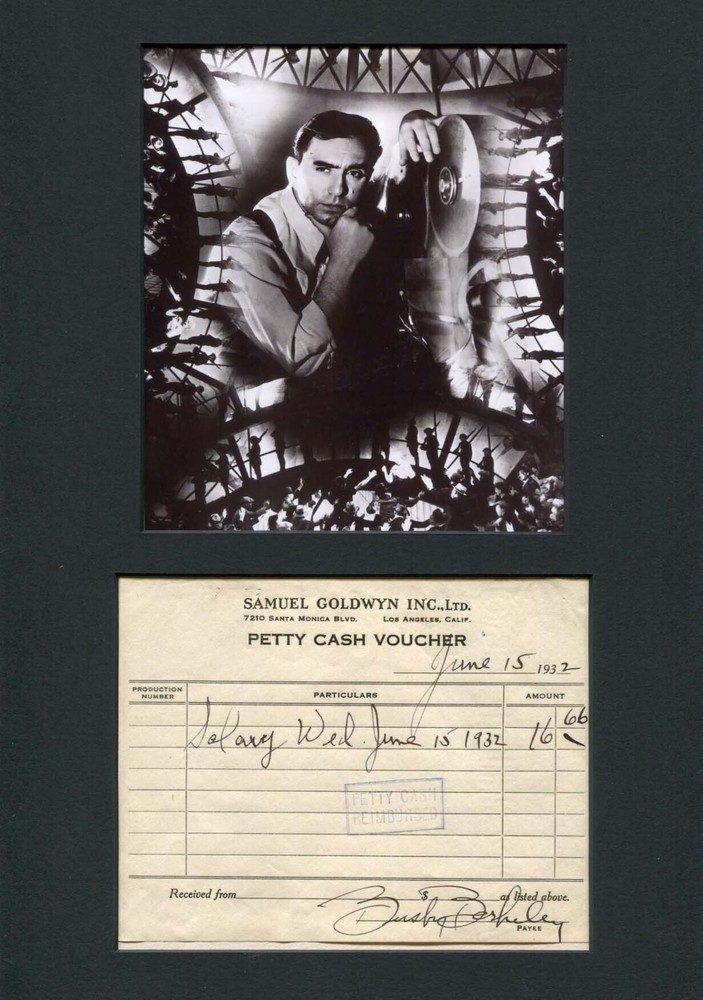 SAMUEL GOLDWYN INC., LTD.
7210 SANTA MONICA BLVD. LOS ANGELES, CALIF.
PETTY CASH VOUCHER
June 15 1932
PRODUCTION NUMBER PARTICULARS AMOUNT
Salary Wed. June 15 1932 16 66
PETTY CASH
REIMBURSED
Received from $ as listed above.
Busby Berkeley
PAYEE